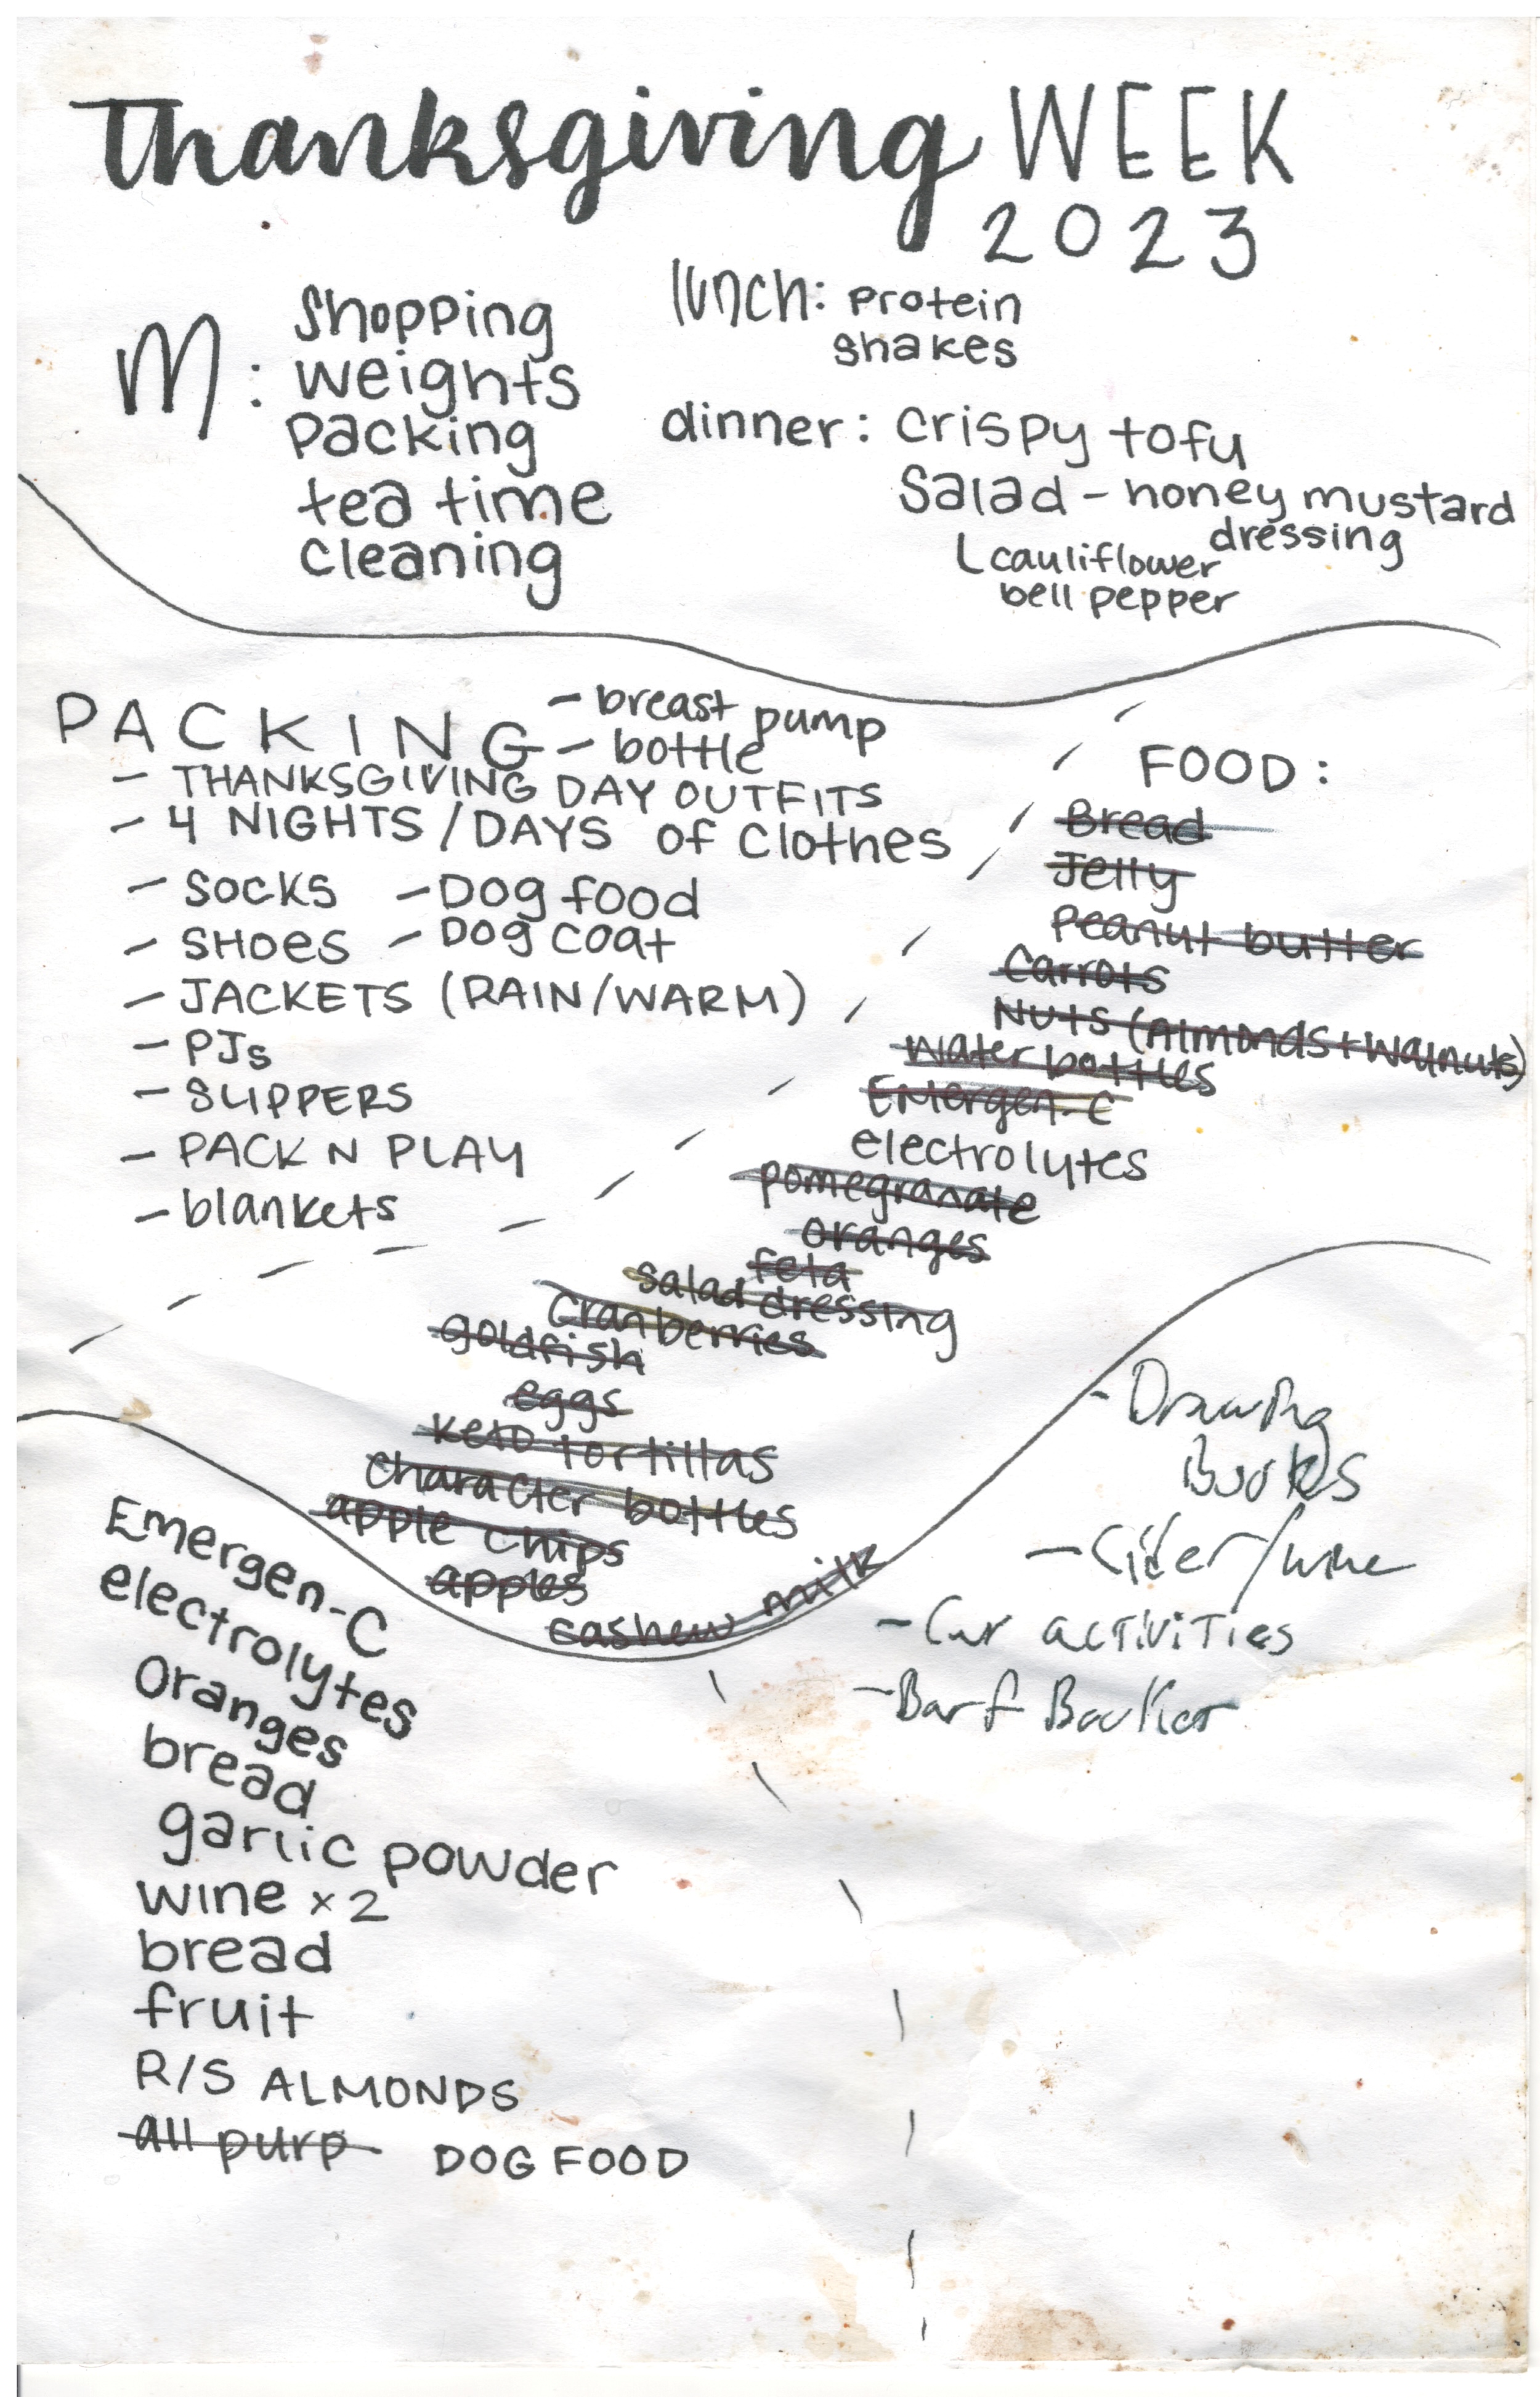 Thanksgiving WEEK
2023
M:
Shopping
weights
packing
tea time
cleaning
lunch: protein
shakes
dinner: crispy tofu
Salad - honey mustard
dressing
cauliflower
bell pepper
PACKING
- breast pump
- bottle
- THANKSGIVING DAY OUTFITS
- 4 NIGHTS/DAYS of clothes
- SOCKS
- SHOES
- Dog food
- Dog coat
- JACKETS (RAIN/WARM)
- PJs
- SLIPPERS
- PACK N PLAY
- blankets
FOOD:
Bread
Jelly
Peanut butter
Carrots
Nuts (Almonds + walnuts)
water bottles
Emergen-C
electrolytes
pomegranate
oranges
feta
salad dressing
cranberries
goldfish
eggs
keto tortillas
character bottles
apple chips
apples
cashew milk
- Drawing
Books
- Cider/wine
- Car activities
- Barf
Emergen-C
electrolytes
Oranges
bread
garlic powder
wine x2
bread
fruit
R/S ALMONDS
all purp DOG FOOD